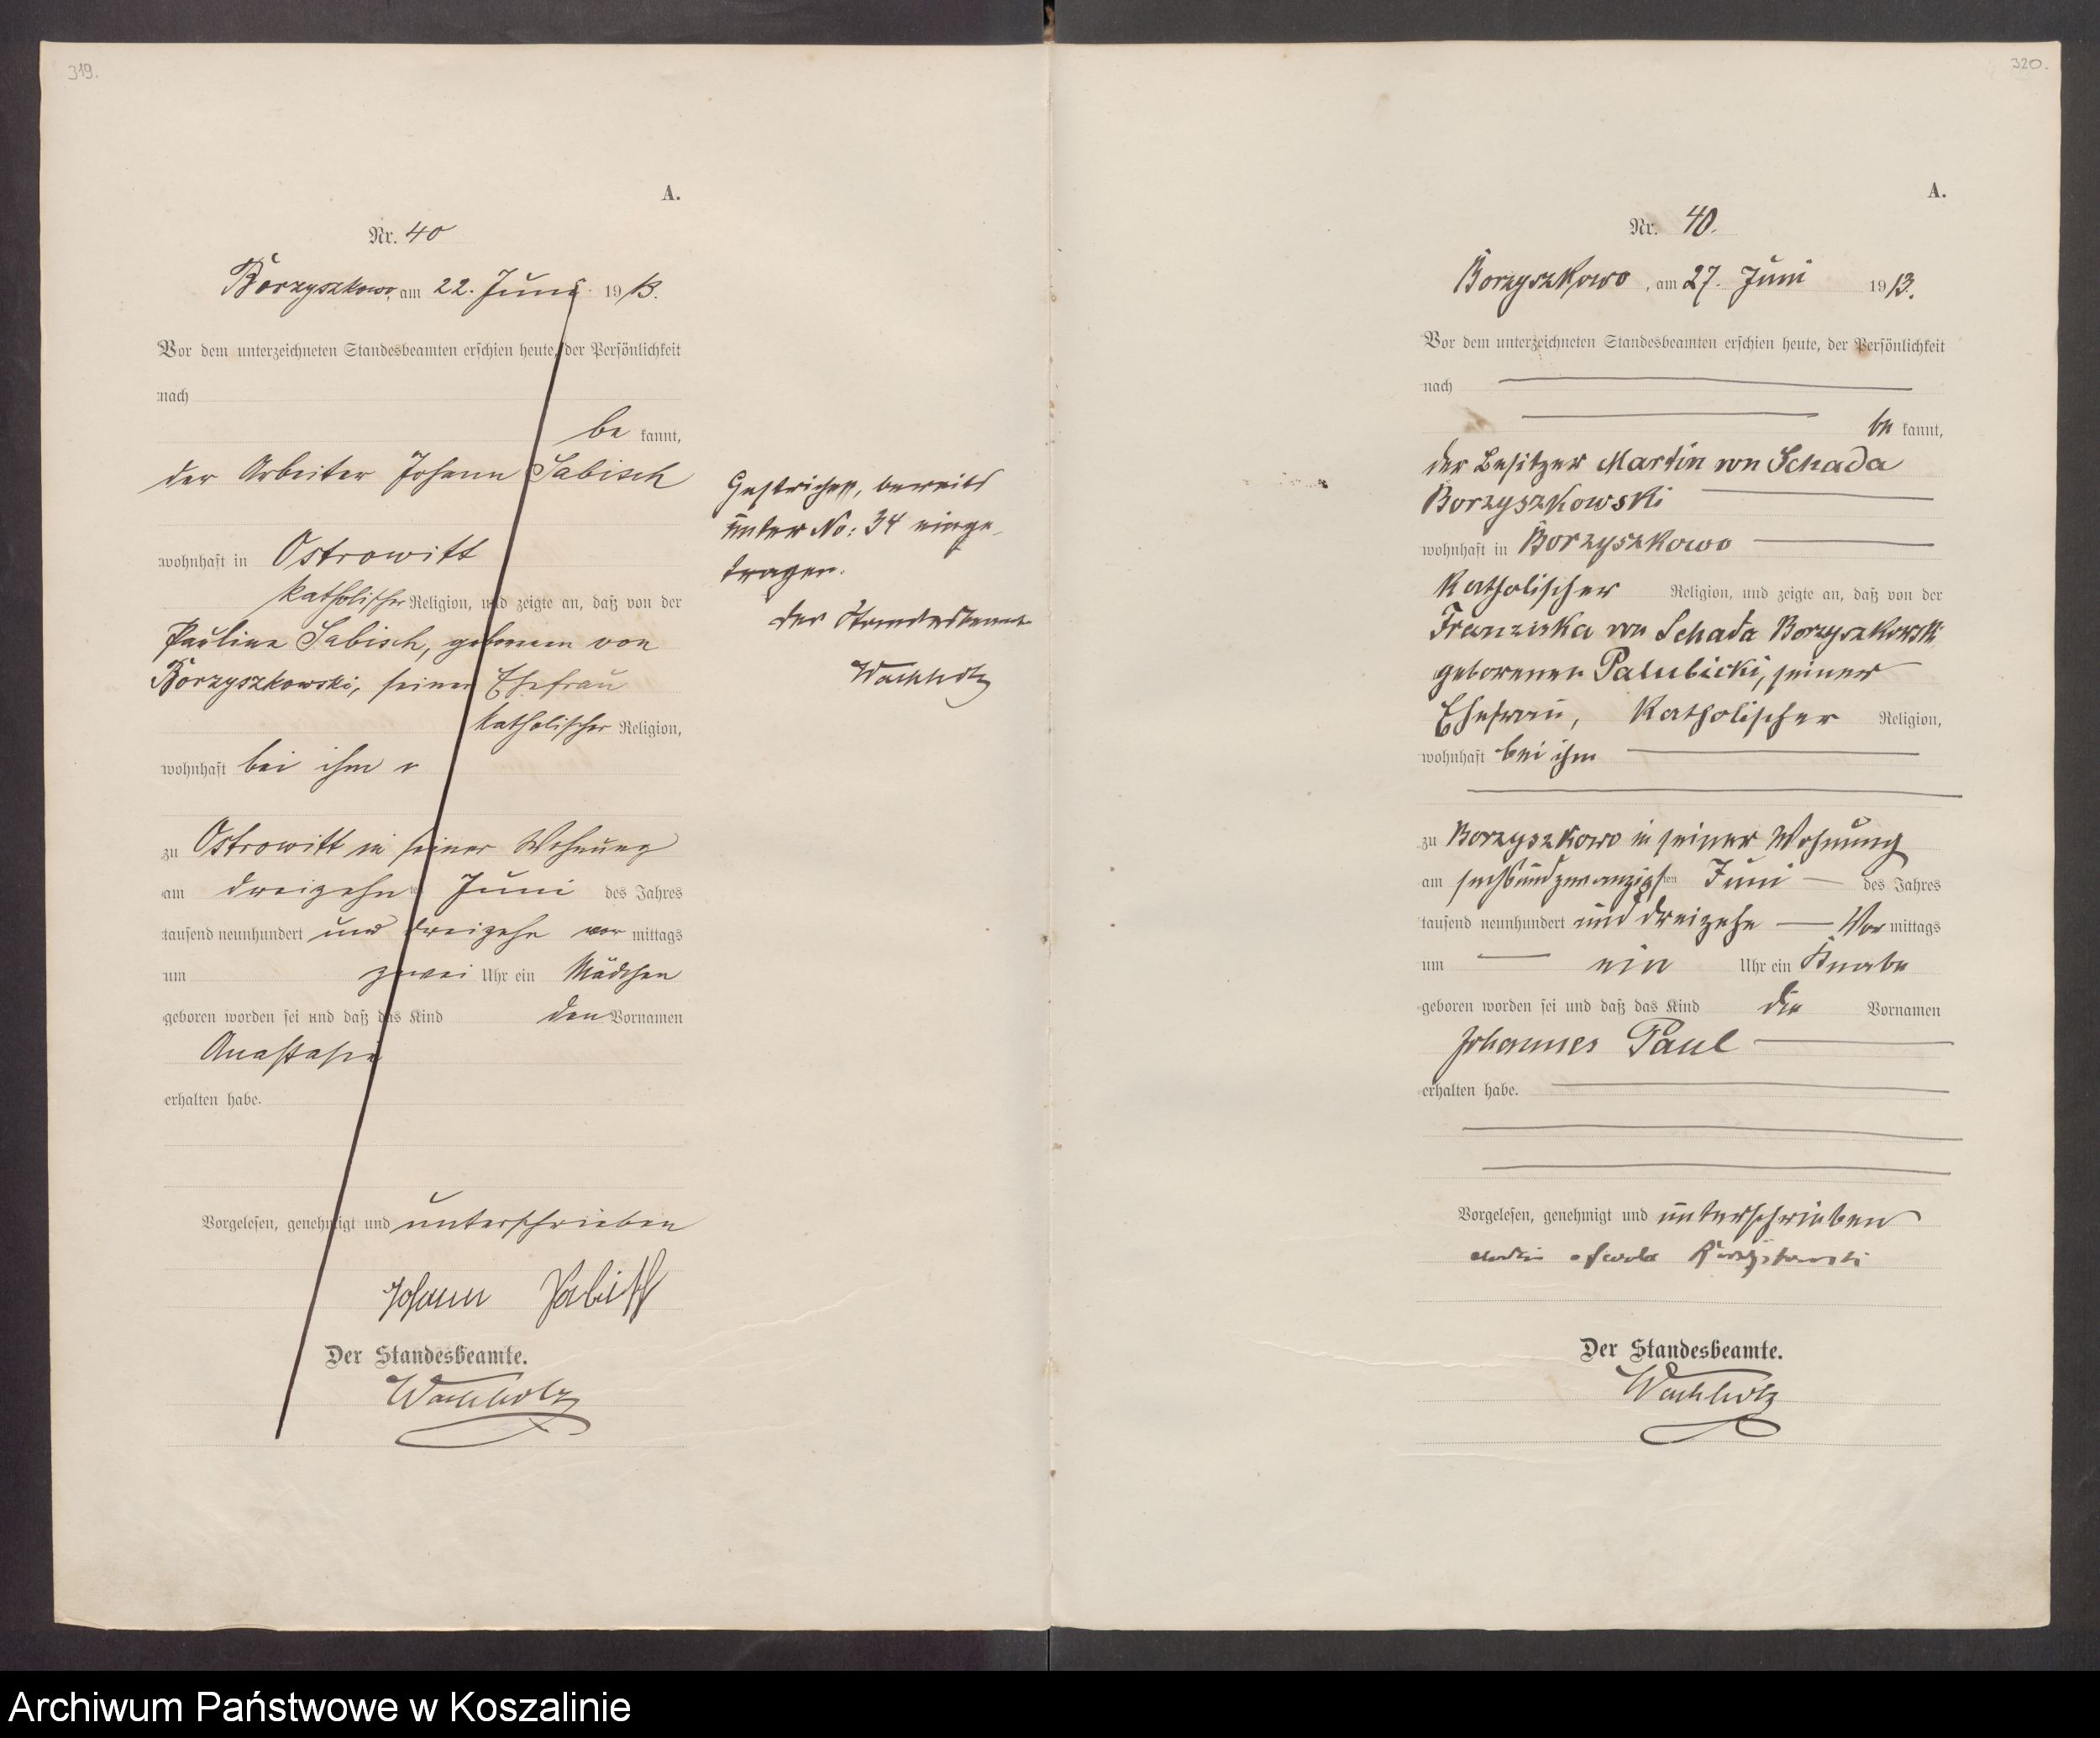 319.
A.
Nr. 40
Borzyszkowo, am 22. Juni 1913.
Vor dem unterzeichneten Standesbeamten erschien heute, der Persönlichkeit
nach
bekannt,
der Arbeiter Johann Sabisch
wohnhaft in Ostrowitt
katholischer Religion, und zeigte an, daß von der
Pauline Sabisch, geborenen von
Borzyszkowski, seiner Ehefrau
katholischer Religion,
wohnhaft bei ihm
zu Ostrowitt in seiner Wohnung
am dreizehnten Juni des Jahres
tausend neunhundert und dreizehn vormittags
um zwei Uhr ein Mädchen
geboren worden sei und daß das Kind den Vornamen
Anastasia
erhalten habe.
Vorgelesen, genehmigt und unterschrieben
Johann Sabisch
Der Standesbeamte.
Wachholz
Gestrichen, bereits
unter No: 34 einge-
tragen.
Der Standesbeamte
Wachholz
320.
A.
Nr. 40.
Borzyszkowo, am 27. Juni 1913.
Vor dem unterzeichneten Standesbeamten erschien heute, der Persönlichkeit
nach
bekannt,
der Besitzer Martin von Schada
Borzyszkowski
wohnhaft in Borzyszkowo
katholischer Religion, und zeigte an, daß von der
Franziska von Schada Borzyszkowski
geborenen Palubicki, seiner
Ehefrau, katholischer Religion,
wohnhaft bei ihm
zu Borzyszkowo in seiner Wohnung
am sechsundzwanzigsten Juni des Jahres
tausend neunhundert und dreizehn Vormittags
um ein Uhr ein Knabe
geboren worden sei und daß das Kind die Vornamen
Johannes Paul
erhalten habe.
Vorgelesen, genehmigt und unterschrieben
Borzyszkowski
Der Standesbeamte.
Wachholz
Archiwum Państwowe w Koszalinie